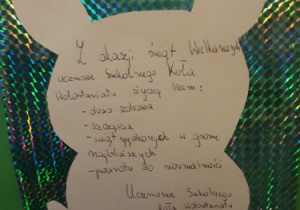 Z okazji świąt Wielkanocnych
uczniowie Szkolnego Koła
Wolontariatu życzą Wam:
- dużo zdrowia
- szczęścia
- świąt spędzonych w gronie
najbliższych
- powrotu do normalności
Uczniowie Szkolnego
Koła Wolontariatu